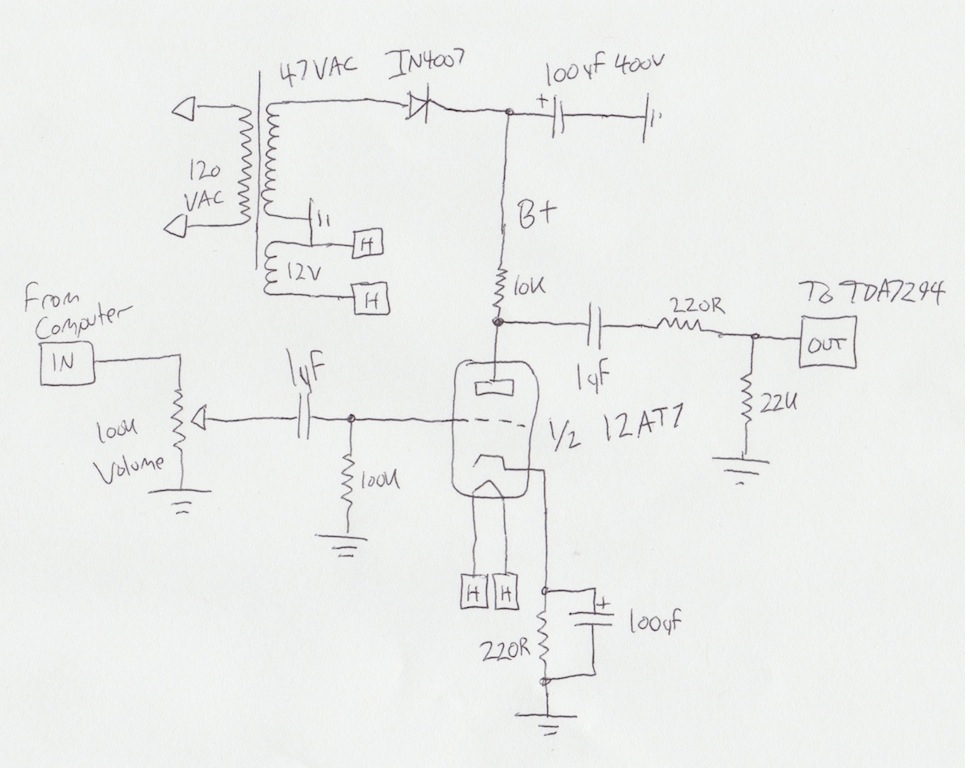 47VAC IN4007
100uf 400V
+
120
VAC
B+
H
12V
H
10K
From
Computer
IN
220R
To TDA7294
OUT
1uF
1uF
100K
Volume
1/2 12AT7
22K
100K
H H
+
100uf
220R